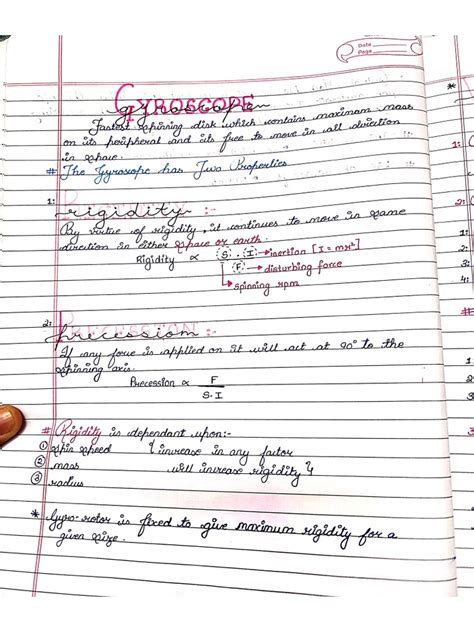 Date
Page
GYROSCOPE
Gyroscope
Fastest spinning disk which contains maximam mass
on its peripheral and its free to move in all direction
in space.
# The Gyrosopc has Two Properties
1:
rigidity :-
By virtue of rigidity, it continues to move in same
direction in either space or earth.
Rigidity ∝ S . I → inertion [I = mr²]
F → disturbing force
spinning rpm
2:
PRECESSION :-
precession
If any force is applied on it will act at 90° to the
spinning axis.
Precession ∝ F
S.I
# Rigidity is dependant upon:-
① spin speed { increase in any factor
② mass will increase rigidity }
③ radius
* Gyro-rotor is fixed to give maximum rigidity for a
given size.